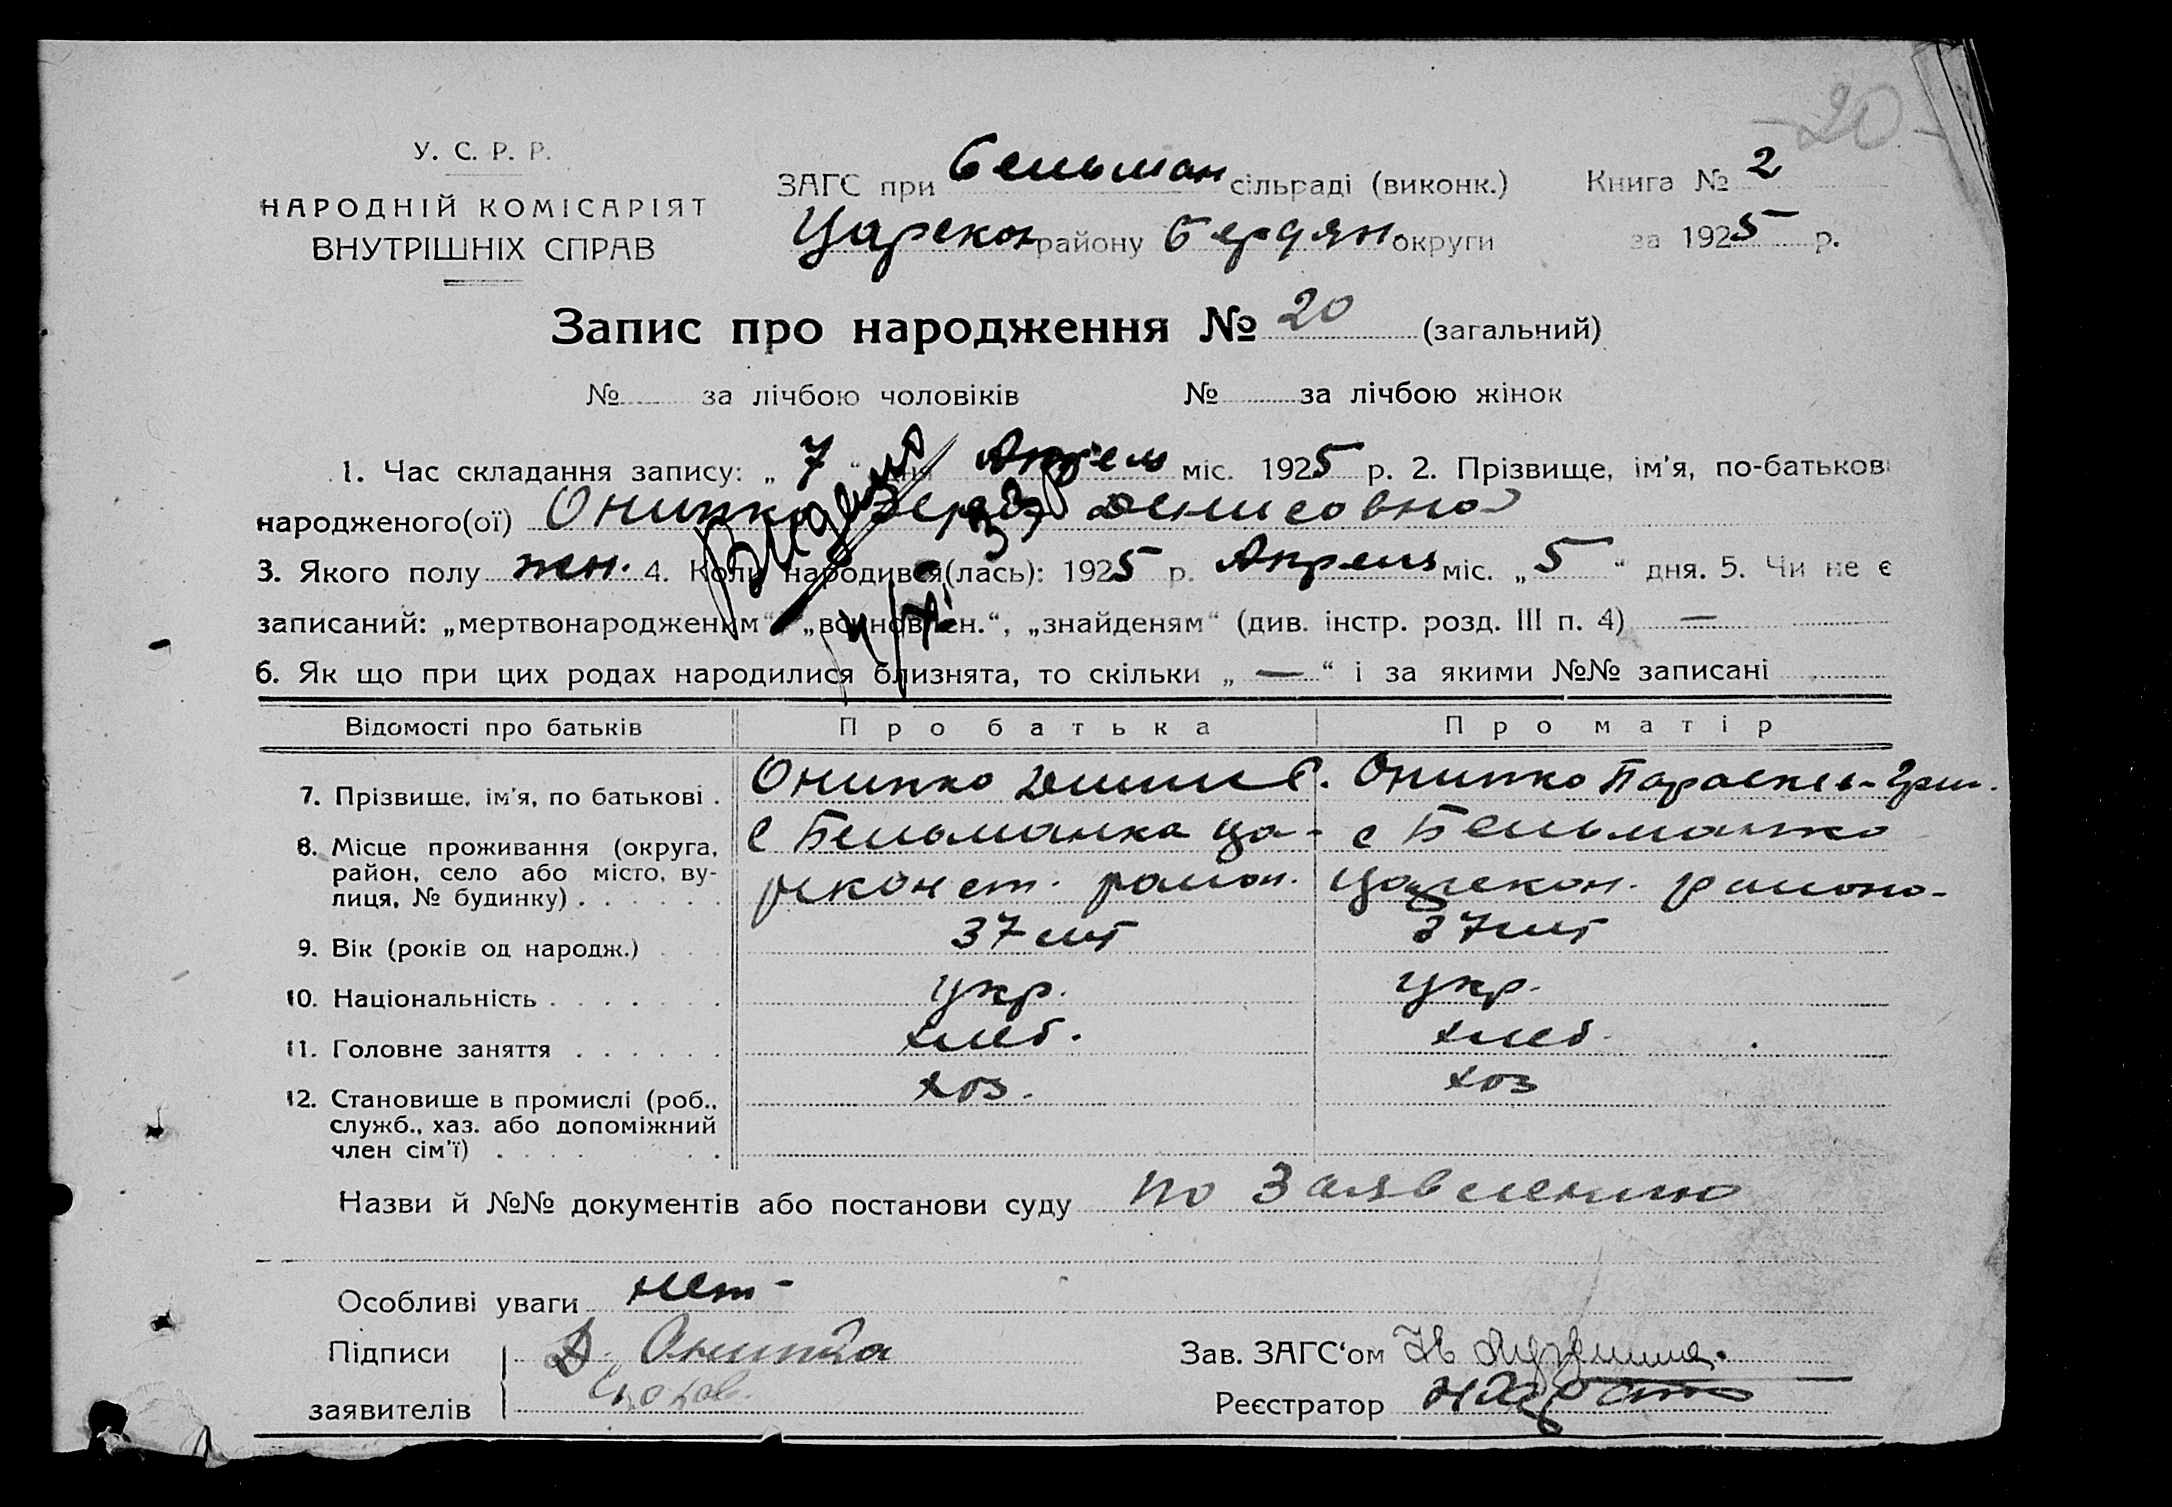 20
У. С. Р. Р.
НАРОДНІЙ КОМІСАРІЯТ
ВНУТРІШНІХ СПРАВ
ЗАГС при Бельман сільраді (виконк.) Книга № 2
Царекон району Бердян. округи за 1925 р.
Запис про народження № 20 (загальний)
№ за лічбою чоловіків № за лічбою жінок
1. Час складання запису: „ 7 “ дня Апрель міс. 1925 р. 2. Прізвище, ім'я, по-батькові
народженого(ої) Онипко Денисовна
3. Якого полу жен. 4. Коли народився(лась): 1925 р. Апреля міс. „ 5 “ дня. 5. Чи не є
записаний: „мертвонародженим“, „всиновлен.“, „знайденям“ (див. інстр. розд. III п. 4) —
6. Як що при цих родах народилися близнята, то скільки „ — “ і за якими №№ записані
Відомості про батьків Про батька Про матір
7. Прізвище, ім'я, по батькові . Онипко Онипко Параскев. Григ.
8. Місце проживання (округа, район, село або місто, вулиця, № будинку) с Бельманка Царекон ст. район. с Бельманка Царекон. района
9. Вік (років од народж.) 37 лет 37 лет
10. Національність укр. укр.
11. Головне заняття хлеб. хлеб.
12. Становище в промислі (роб., служб., хаз. або допоміжний член сім'ї) хоз. хоз
Назви й №№ документів або постанови суду по Заявлению
Особливі уваги нет
Підписи Д. Онипко Зав. ЗАГС'ом
заявителів Реєстратор